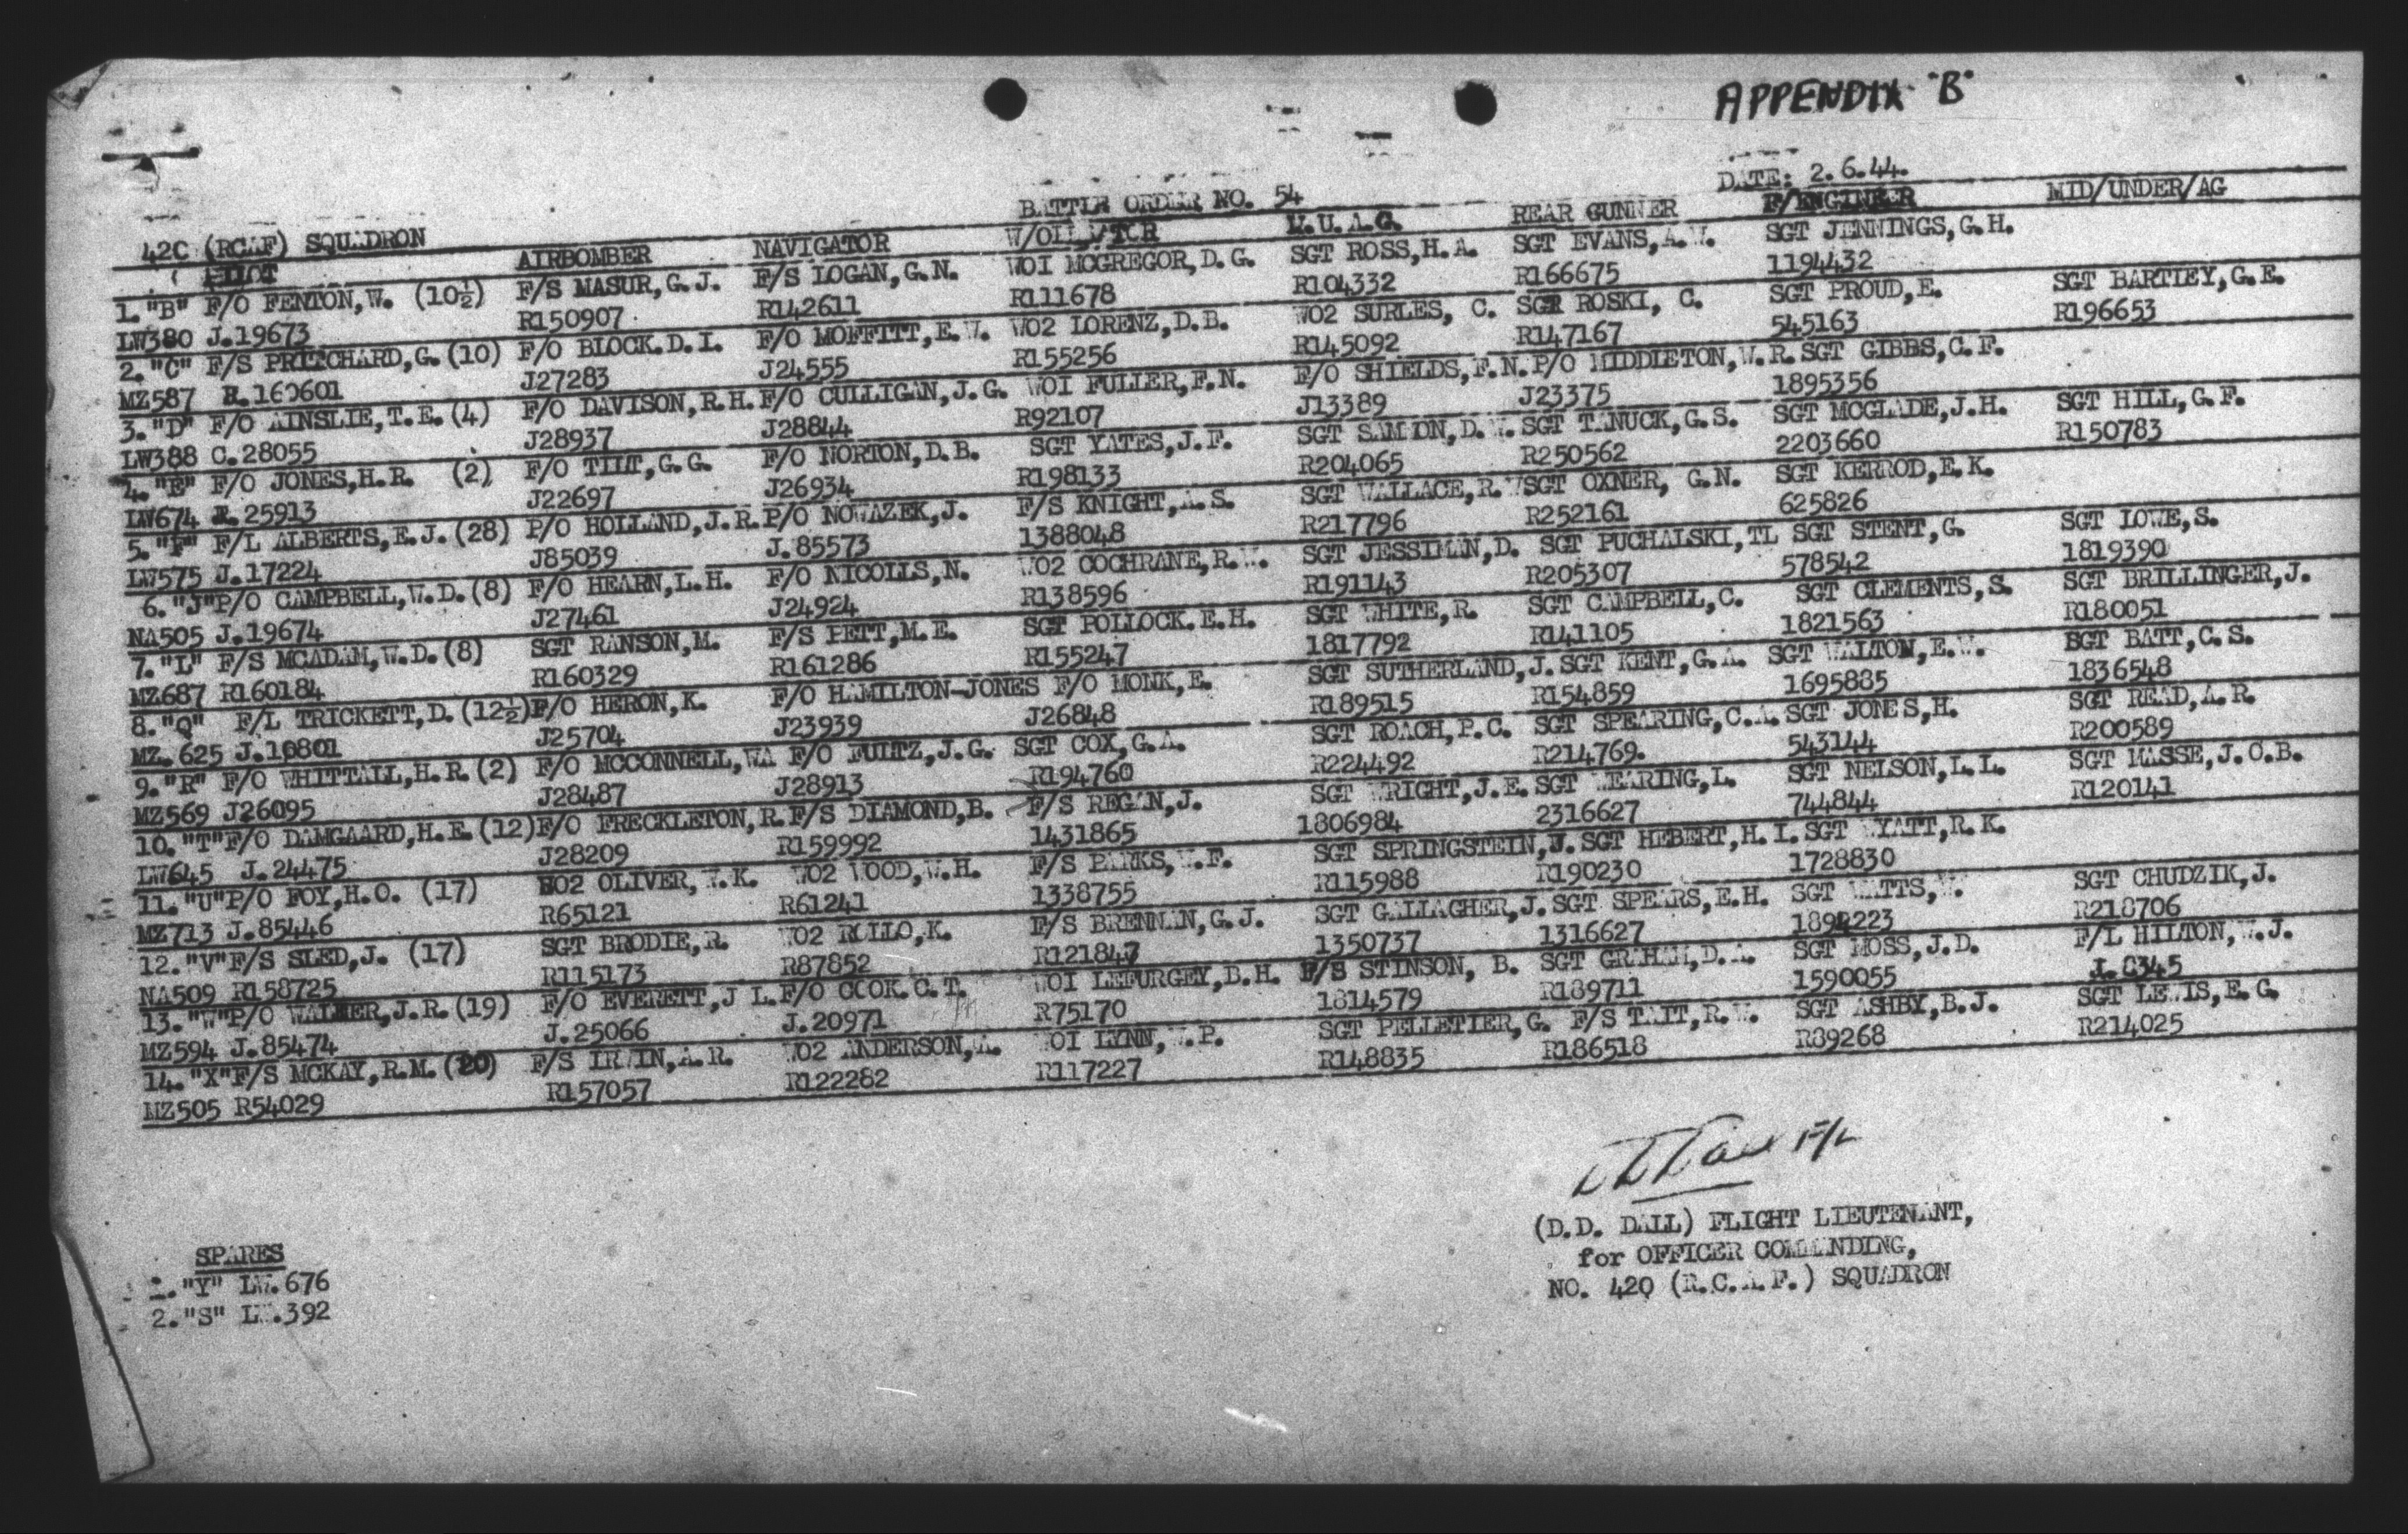 APPENDIX "B"
DATE: 2.6.44.
BATTLE ORDER NO. 54
420 (RCAF) SQUADRON
PILOT AIRBOMBER NAVIGATOR W/OPERATOR M.U.A.G. REAR GUNNER F/ENGINEER MID/UNDER/AG
1."B" F/O FENTON,W. (10½) F/S MASUR,G.J. F/S LOGAN,G.N. WOI MCGREGOR,D.G. SGT ROSS,H.A. SGT EVANS,A.W. SGT JENNINGS,G.H.
LW380 J.19673 R150907 R142611 R111678 R104332 R166675 1194432
2."C" F/S PRITCHARD,G.(10) F/O BLOCK.D.I. F/O MOFFITT,E.W. WO2 LORENZ,D.B. WO2 SURLES, C. SGT ROSKI, C. SGT PROUD,E. SGT BARTLEY,G.E.
MZ587 R.160601 J27283 J24555 R155256 R145092 R147167 545163 R196653
3."D" F/O AINSLIE,T.E.(4) F/O DAVISON,R.H. F/O CULLIGAN,J.G. WOI FULLER,F.N. F/O SHIELDS,F.N. P/O MIDDLETON,W.R. SGT GIBBS,C.F.
LW388 C.28055 J28937 J28844 R92107 J13389 J23375 1895356
4."E" F/O JONES,H.R. (2) F/O TILT,G.G. F/O NORTON,D.B. SGT YATES,J.F. SGT SAMSON,D.W. SGT TANUCK,G.S. SGT MCGLADE,J.H. SGT HILL,G.F.
LW674 J.25913 J22697 J26934 R198133 R204065 R250562 2203660 R150783
5."F" F/L ALBERTS,E.J.(28) P/O HOLLAND,J.R. P/O NOWAZEK,J. F/S KNIGHT,A.S. SGT WALLACE,R.W SGT OXNER, G.N. SGT KERROD,E.K.
LW575 J.17224 J85039 J.85573 1388048 R217796 R252161 625826
6."J" P/O CAMPBELL,W.D.(8) F/O HEARN,L.H. F/O NICOLLS,N. WO2 COCHRANE,R.W. SGT JESSIMAN,D. SGT PUCHALSKI,TL SGT STENT,G. SGT LOWE,S.
NA505 J.19674 J27461 J24924 R138596 R191143 R205307 578542 1819390
7."L" F/S MCADAM,W.D.(8) SGT RANSON,M. F/S PETT,M.E. SGT POLLOCK.E.H. SGT WHITE,R. SGT CAMPBELL,C. SGT CLEMENTS,S. SGT BRILLINGER,J.
MZ687 R160184 R160329 R161286 R155247 1817792 R141105 1821563 R180051
8."Q" F/L TRICKETT,D.(12½) F/O HERON,K. F/O HAMILTON-JONES F/O MONK,E. SGT SUTHERLAND,J. SGT KENT,G.A. SGT WALTON,E.W. SGT BATT,C.S.
MZ.625 J.10801 J25704 J23939 J26848 R189515 R154859 1695885 1836548
9."R" F/O WHITTALL,H.R.(2) F/O MCCONNELL,WA F/O FULTZ,J.G. SGT COX,G.A. SGT ROACH,P.C. SGT SPEARING,C.A. SGT JONES,H. SGT READ,A.R.
MZ569 J26095 J28487 J28913 R194760 R224492 R214769. 543144 R200589
10."T" F/O DAMGAARD,H.E.(12) F/O FRECKLETON,R. F/S DIAMOND,B. F/S REGAN,J. SGT WRIGHT,J.E. SGT WEARING,L. SGT NELSON,L.L. SGT MASSE,J.O.B.
LW645 J.24475 J28209 R159992 1431865 1806984 2316627 744844 R120141
11."U" P/O FOY,H.O. (17) WO2 OLIVER,W.K. WO2 WOOD,W.H. F/S PARKS,W.F. SGT SPRINGSTEIN,W. SGT HEBERT,H.I. SGT WYATT,R.K.
MZ713 J.85446 R65121 R61241 1338755 R115988 R190230 1728830
12."V" F/S SLED,J. (17) SGT BRODIE,R. WO2 ROLLO,K. F/S BRENNAN,G.J. SGT GALLAGHER,J. SGT SPEARS,E.H. SGT WATTS,W. SGT CHUDZIK,J.
NA509 R158725 R115173 R87852 R121847 1350737 1316627 1892223 R218706
13."W" P/O WALKER,J.R.(19) F/O EVERETT,J L. F/O COOK.C.T. WOI LEFURGEY,B.H. F/S STINSON, B. SGT GRAHAM,D.A. SGT MOSS,J.D. F/L HILTON,W.J.
MZ594 J.85474 J.25066 J.20971 R75170 1814579 R189711 1590055 J.8345
14."X" F/S MCKAY,R.M.(20) F/S IRWIN,A.R. WO2 ANDERSON,A. WOI LYNN,W.P. SGT PELLETIER,G. F/S TAIT,R.W. SGT ASHBY,B.J. SGT LEWIS,E.G.
MZ505 R54029 R157057 R122282 R117227 R148835 R186518 R89268 R214025
F/L
(D.D. DALL) FLIGHT LIEUTENANT,
for OFFICER COMMANDING,
NO. 420 (R.C.A.F.) SQUADRON
SPARES
1."Y" LW.676
2."S" LW.392